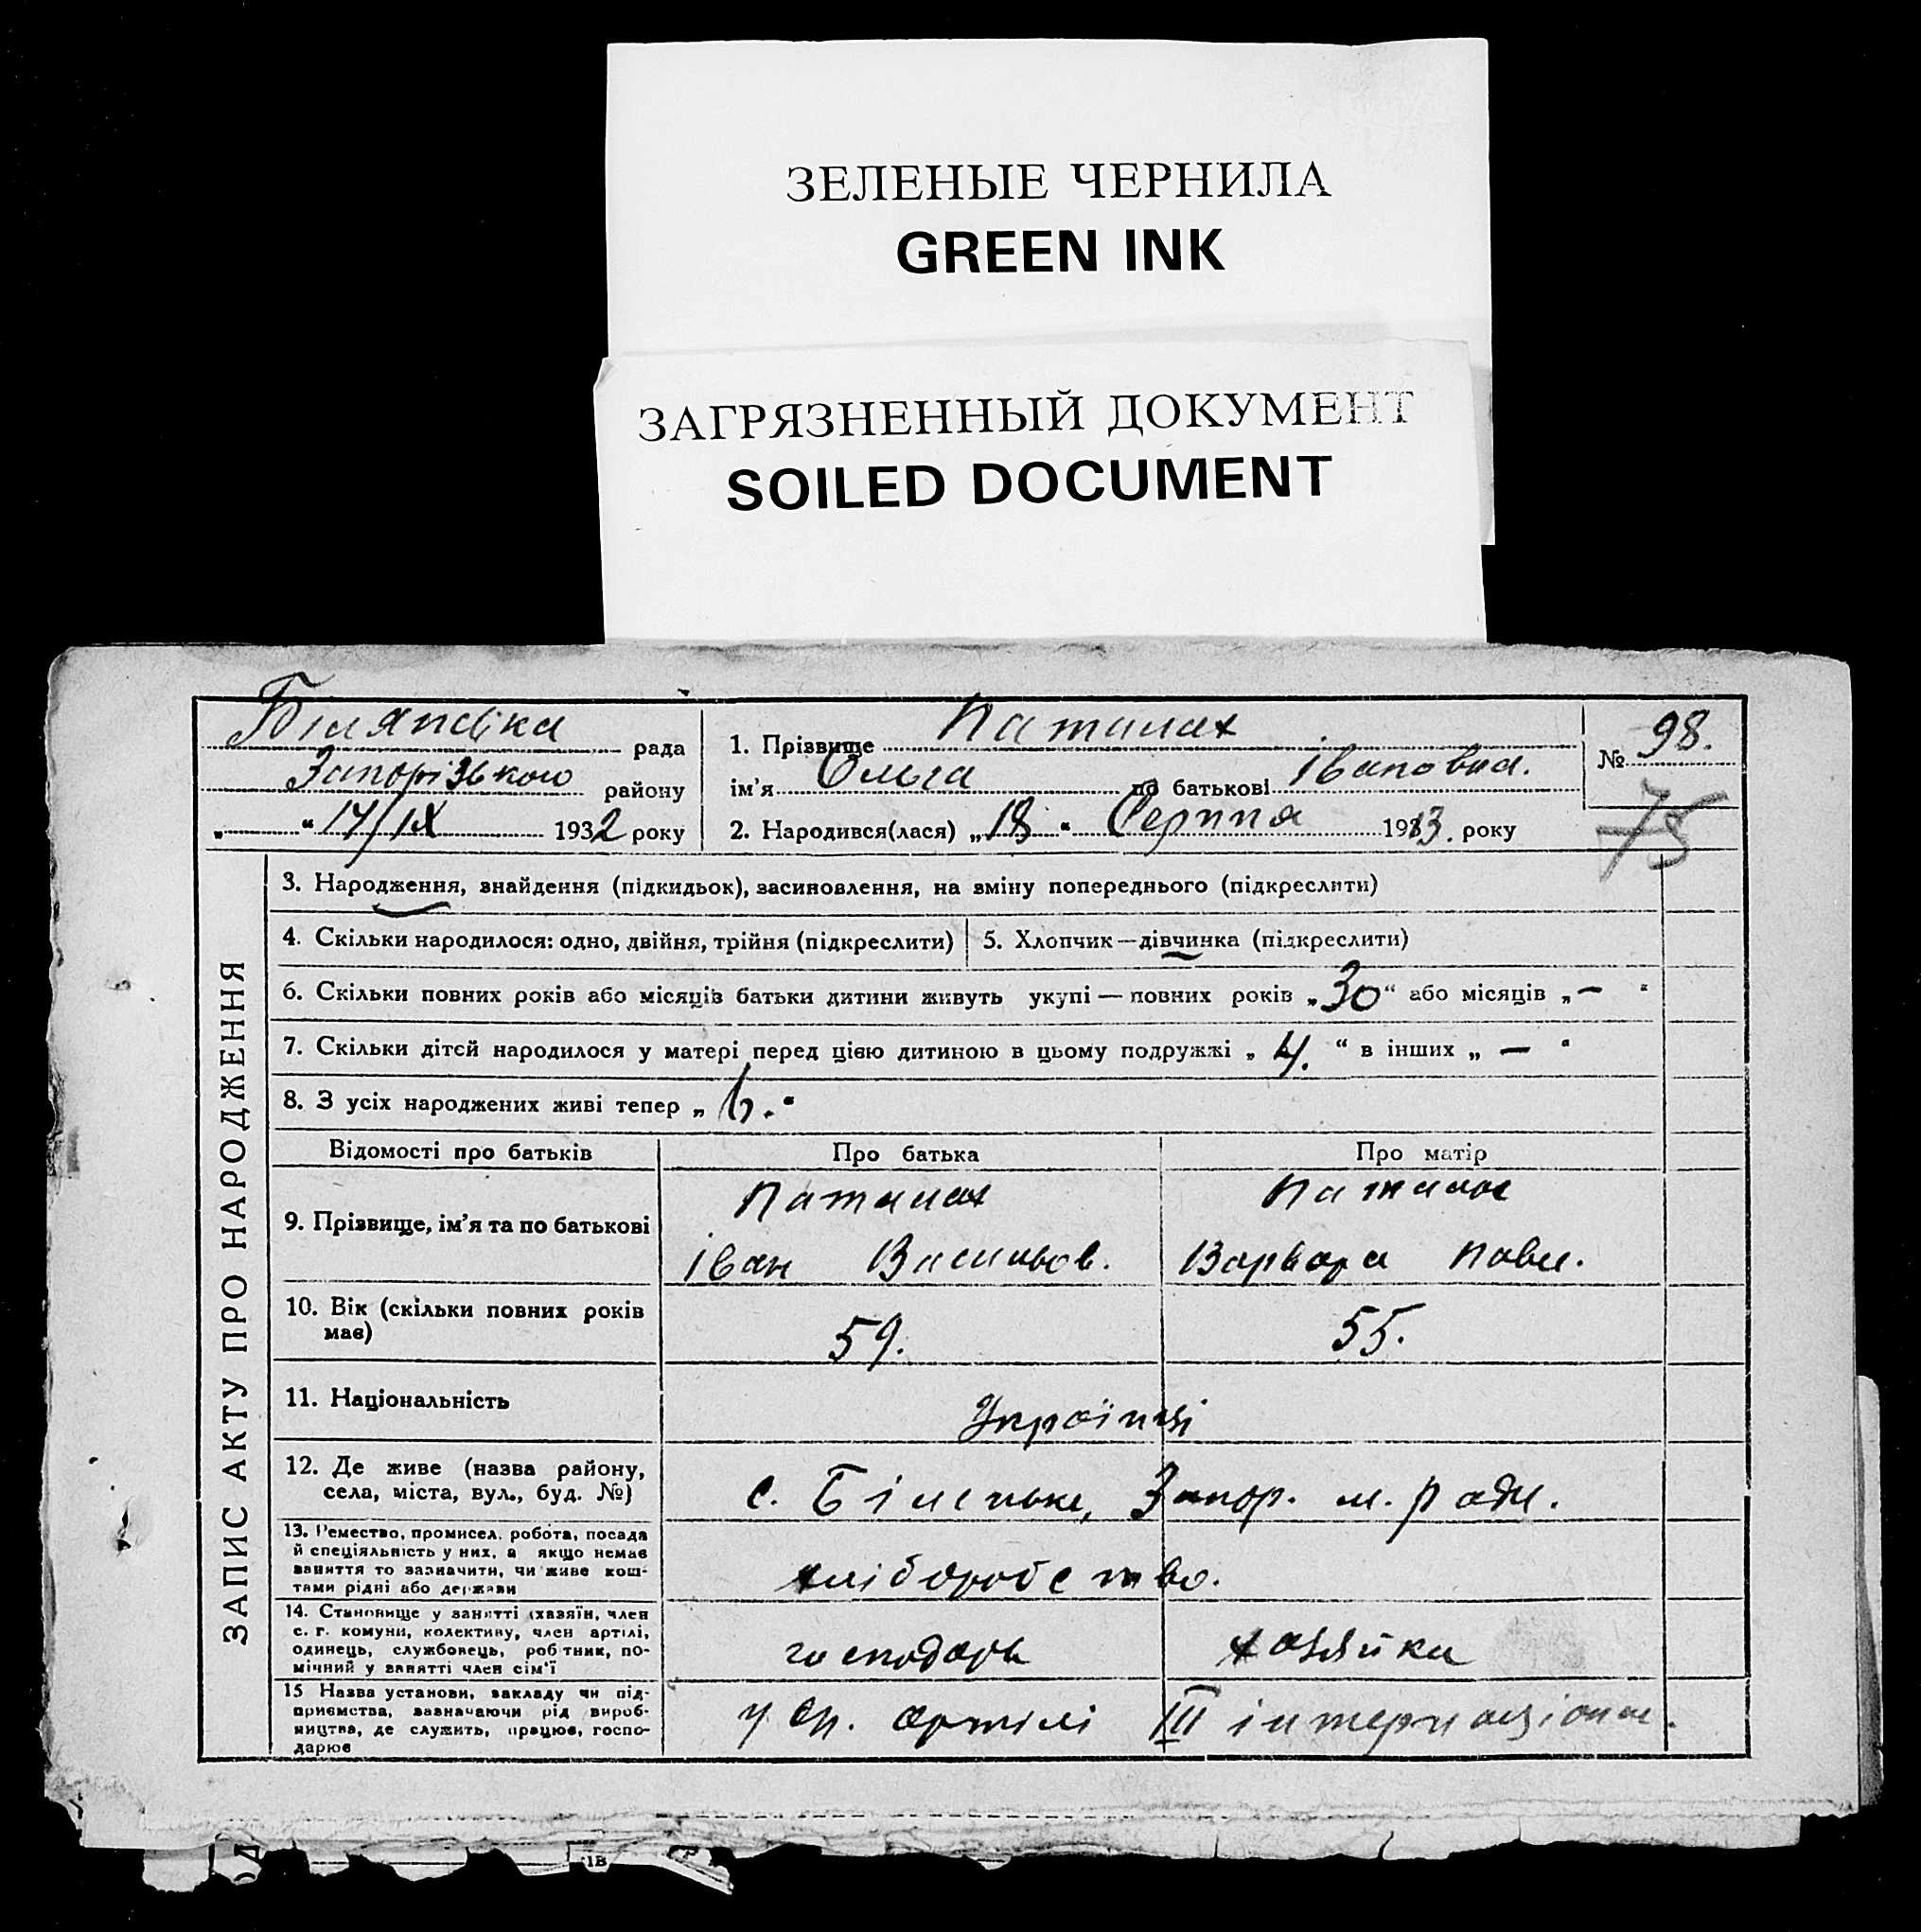 ЗЕЛЕНЫЕ ЧЕРНИЛА
GREEN INK
ЗАГРЯЗНЕННЫЙ ДОКУМЕНТ
SOILED DOCUMENT
Білянська рада
Запорізького району
„ “ 17/IX 1932 року
1. Прізвище Паталах
ім'я Ольга по батькові Івановна.
2. Народився(лася) „18“ Серпня 1913. року
№ 98.
75
ЗАПИС АКТУ ПРО НАРОДЖЕННЯ
3. Народження, знайдення (підкидьок), засиновлення, на зміну попереднього (підкреслити)
4. Скільки народилося: одно, двійня, трійня (підкреслити)
5. Хлопчик—дівчинка (підкреслити)
6. Скільки повних років або місяців батьки дитини живуть укупі — повних років „30“ або місяців „—“
7. Скільки дітей народилося у матері перед цією дитиною в цьому подружжі „4.“ в інших „—“
8. З усіх народжених живі тепер „6.“
Відомості про батьків Про батька Про матір
9. Прізвище, ім'я та по батькові
Паталах
Іван Васильов.
Паталах
Варвара Павл.
10. Вік (скільки повних років
має)
59. 55.
11. Національність
Українці
12. Де живе (назва району,
села, міста, вул., буд. №)
с. Біленьке, Запор. м. ради.
13. Ремество, промисел, робота, посада
й спеціяльність у них, а якщо немає
заняття то зазначити, чи живе кош-
тами рідні або держави
хліборобство.
14. Становище у занятті (хазяїн, член
с. г. комуни, колективу, член артілі,
одинець, службовець, робітник, по-
мічний у занятті член сім'ї
господарь хазяйка
15 Назва установи, закладу чи під-
приємства, зазначаючи рід вироб-
ництва, де служить, працює, госпо-
дарює
у ср. артілі III інтернаціонал.
1В